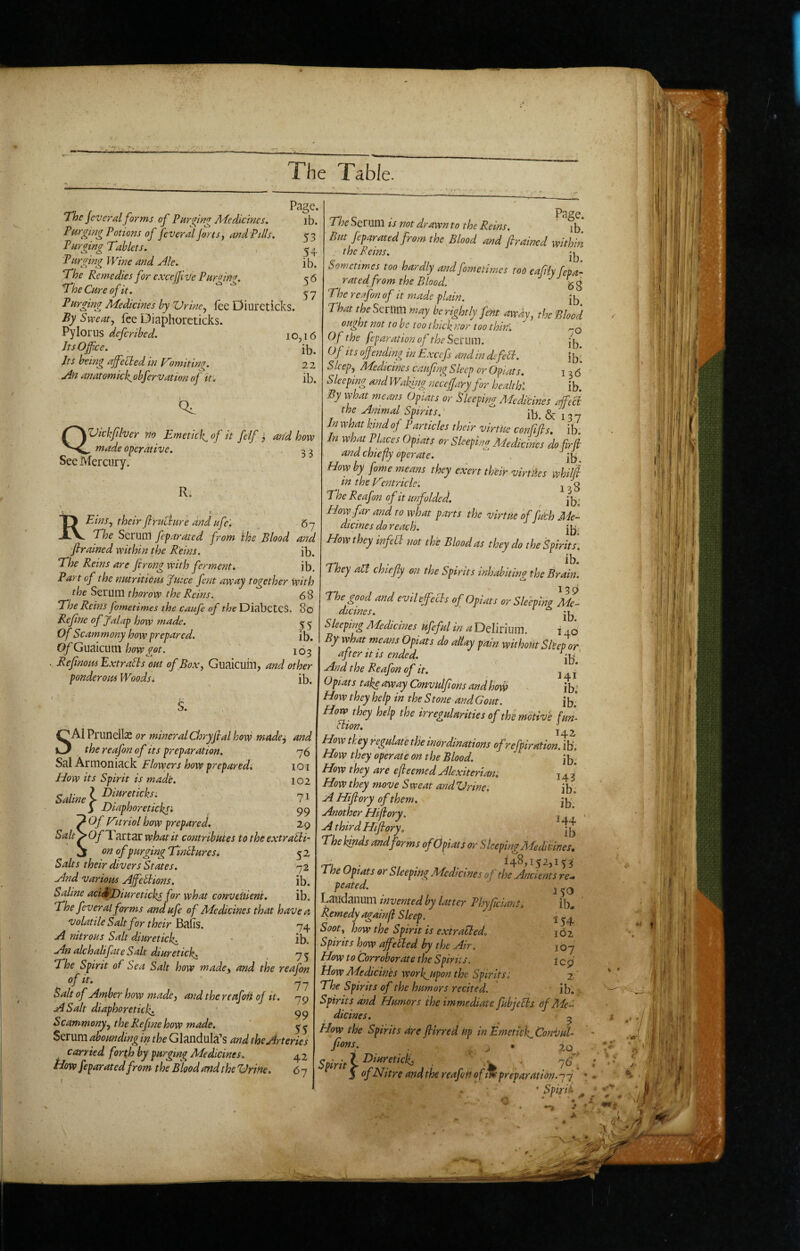 The Table.
Page.
The several forms of Purging Medicines. ib.
Purging Potions of several sorts, and Pills. 53
Purging Tablets. 54
Purging Wine and Ale. ib.
The Remedies for excessive Purging. 56
The Cure of it. 57
Purging Medicines by Urine, see Diureticks.
By Sweat, see Diaphoreticks.
Pylorus described. 10,16
Its Office. ib.
Its being affected in Vomiting. 22
An anatomick observation of it. ib.
Q.
QUicksilver no Emetick of it self, and how
made operative. 33
See Mercury.
R.
REins, their structure and use. 67
The Serum separated from the Blood and
strained within the Reins. ib.
The Reins are strong with ferment. ib.
Part of the nutritious Juice sent away together with
the Serum thorow the Reins. 68
The Reins sometimes the cause of the Diabetes. 80
Resine of Jalap how made. 55
Of Scammony how prepared. ib.
Of Guaicum how got. 103
Resinous Extracts out of Box, Guaicum, and other
ponderous Woods. ib.
S.
SAl Prunellæ or mineral Chrystal how made, and
the reason of its preparation. 76
Sal Armoniack Flowers how prepared. 101
How its Spirit is made. 102
Saline } Diureticks. 71
Diaphoreticks. 99
Salt } Of Vitriol how prepared. 29
Of Tartar what it contributes to the extracti-
on of purging Tinctures. 52
Salts their divers States. 72
And various Affections. ib.
Saline acid Diureticks for what convenient. ib.
The several forms and use of Medicines that have a
volatile Salt for their Basis. 74
A nitrous Salt diuretick. ib.
An alchalisate Salt diuretick. 75
The Spirit of Sea Salt how made, and the reason
of it. 77
Salt of Amber how made, and the reason of it. 79
A Salt diaphoretick. 99
Scammony, the Resine how made. 55
Serum abounding in the Glandula's and the Arteries
carried forth by purging Medicines. 42
How separated from the Blood and the Urine. 67
Page.
The Serum is not drawn to the Reins. ib.
But separated from the Blood and strained within
the Reins. ib.
Sometimes too hardly and sometimes too easily sepa-
rated from the Blood. 68
The reason of it made plain. ib.
That the Serum may be rightly sent away, the Blood
ought not to be too thick nor too thin. 70
Of the separation of the Serum. ib.
Of its offending in Excess and in defect. ib.
Sleep, Medicines causing Sleep or Opiats. 136
Sleeping and Waking necessary for health. ib.
By what means Opiats or Sleeping Medicines affect
the Animal Spirits. ib. & 137
In what kind of Particles their virtue consists. ib.
In what Places Opiats or Sleeping Medicines do first
and chiefly operate. ib.
How by some means they exert their virtues whilst
in the Ventricle. 138
The Reason of it unfolded. ib.
How far and to what parts the virtue of such Me-
dicines do reach. ib.
How they infect not the Blood as they do the Spirits.
ib.
They act chiefly on the Spirits inhabiting the Brain.
139
The good and evil effects of Opiats or Sleeping Me-
dicines. ib.
Sleeping Medicines useful in a Delirium. 140
By what means Opiats do allay pain without Sleep or
after it is ended. ib.
And the Reason of it. 141
Opiats take away Convulsions and how ib.
How they help in the Stone and Gout. ib.
How they help the irregularities of the motive fun-
ction. 142
How they regulate the inordinations of respiration. ib.
How they operate on the Blood. ib.
How they are esteemed Alexiterian. 143
How they move Sweat and Urine. ib.
A History of them. ib.
Another History. 144
A third History. ib
The kinds and forms of Opiats or Sleeping Medicines.
148,152,153
The Opiats or Sleeping Medicines of the Ancients re-
peated. 150
Laudanum invented by latter Physicians. ib.
Remedy against Sleep. 154
Soot, how the Spirit is extracted. 102
Spirits how affected by the Air. 107
How to Corroborate the Spirits. 109
How Medicines work upon the Spirits. 2
The Spirits of the humors recited. ib.
Spirits and Humors the immediate subjects of Me-
dicines. 3
How the Spirits are stirred up in Emetick Convul-
sions. 20
Spirit } Diuretick. 76
of Nitre and the reason of its preparation. 77
Spirit